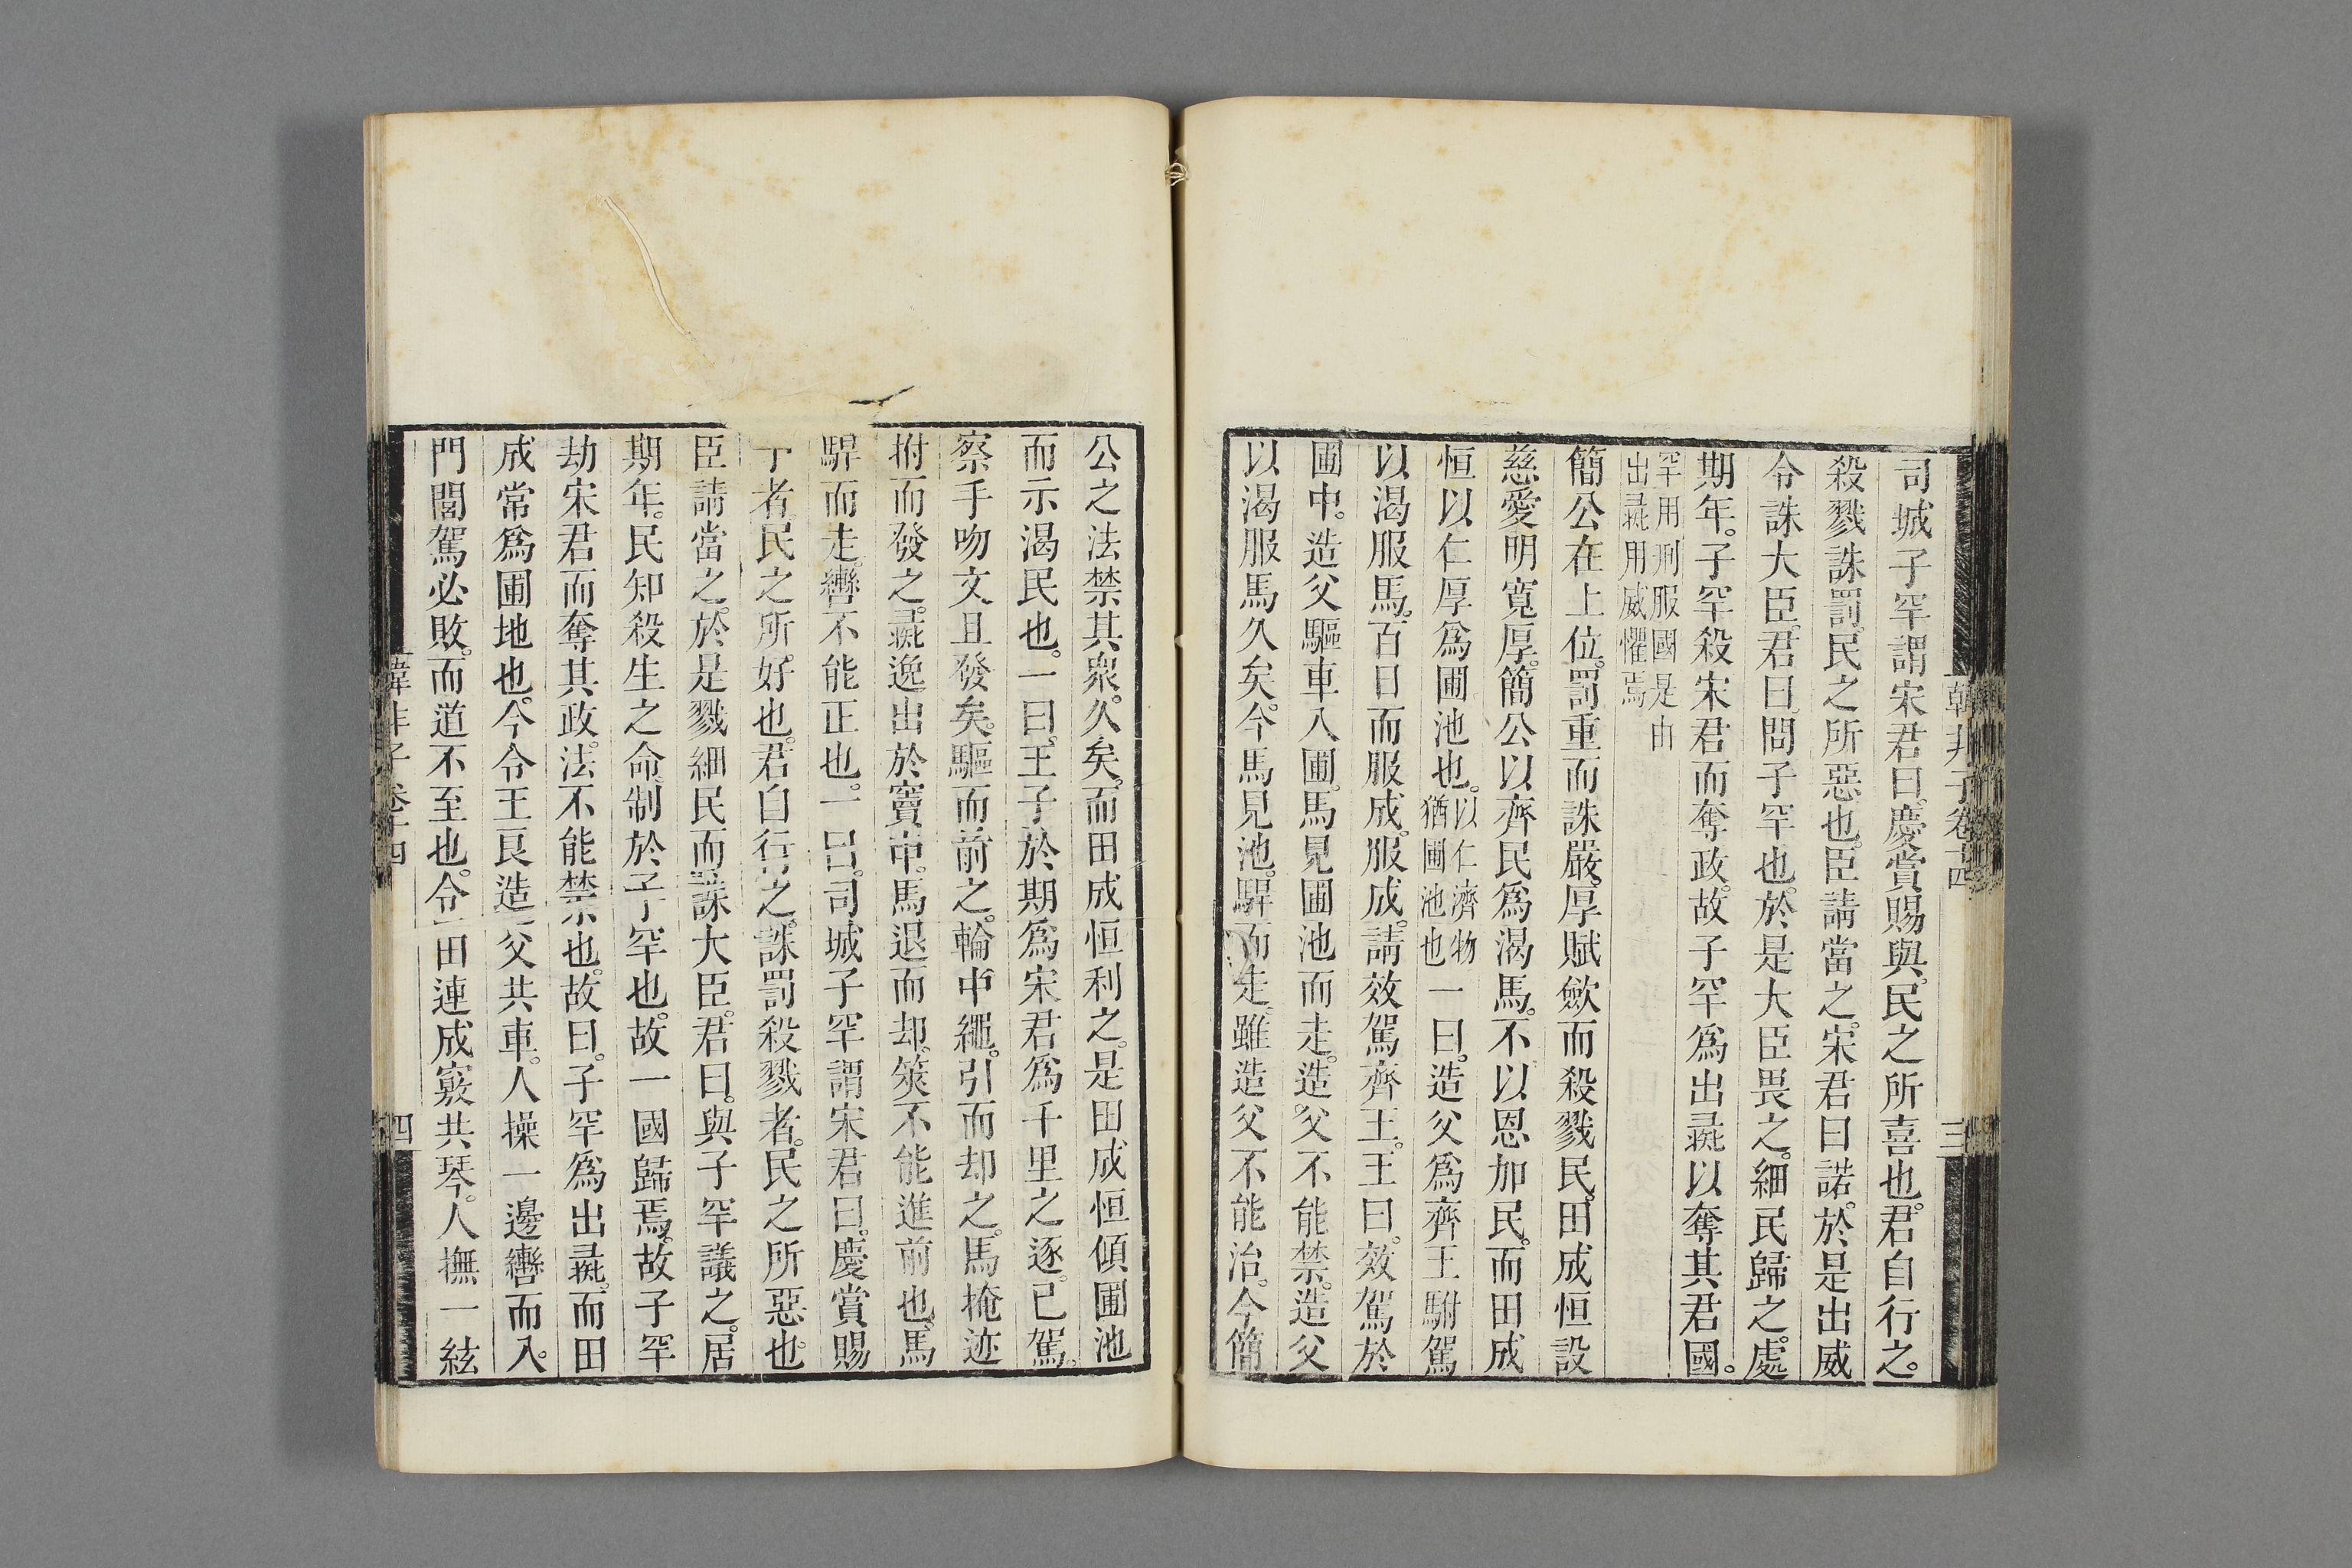 司城子罕謂宋君曰。慶賞賜與。民之所喜也。君自行之。
殺戮誅罰。民之所惡也。臣請當之。宋君曰諾。於是出威
令誅大臣。君曰。問子罕也。於是大臣畏之。細民歸之。處
期年。子罕殺宋君而奪政。故子罕爲出彘以奪其君國。
罕用刑服國是由
出彘用威懼焉
簡公在上位。罰重而誅嚴。厚賦斂而殺戮民。田成恒設
慈愛明寬厚。簡公以齊民爲渴馬。不以恩加民。而田成
恒以仁厚爲圃池也。以仁濟物猶圃池也一曰。造父爲齊王駙駕
以渴服馬。百日而服成。服成。請效駕齊王。王曰。效駕於
圃中。造父驅車入圃。馬見圃池而走。造父不能禁。造父
以渴服馬久矣。今馬見池。駻而走。雖造父不能治。今簡
韓非子卷十四
三
公之法禁其衆。久矣。而田成恒利之。是田成恒傾圃池
而示渴民也。一曰。王子於期爲宋君爲千里之逐。已駕。
察手吻文且發矣。驅而前之。輪中繩。引而却之。馬掩迹
拊而發之。彘逸出於竇中。馬退而却。筴不能進前也。馬
駻而走。轡不能正也。一曰。司城子罕謂宋君曰。慶賞賜
予者。民之所好也。君自行之。誅罰殺戮者。民之所惡也。
臣請當之。於是戮細民而誅大臣。君曰。與子罕議之。居
期年。民知殺生之命制於子罕也。故一國歸焉。故子罕
劫宋君而奪其政。法不能禁也。故曰。子罕爲出彘。而田
成常爲圃地也。今令王良造父共車。人操一邊轡而入
門閭。駕必敗。而道不至也。令田連成竅共琴。人撫一絃
韓非子卷十四
四